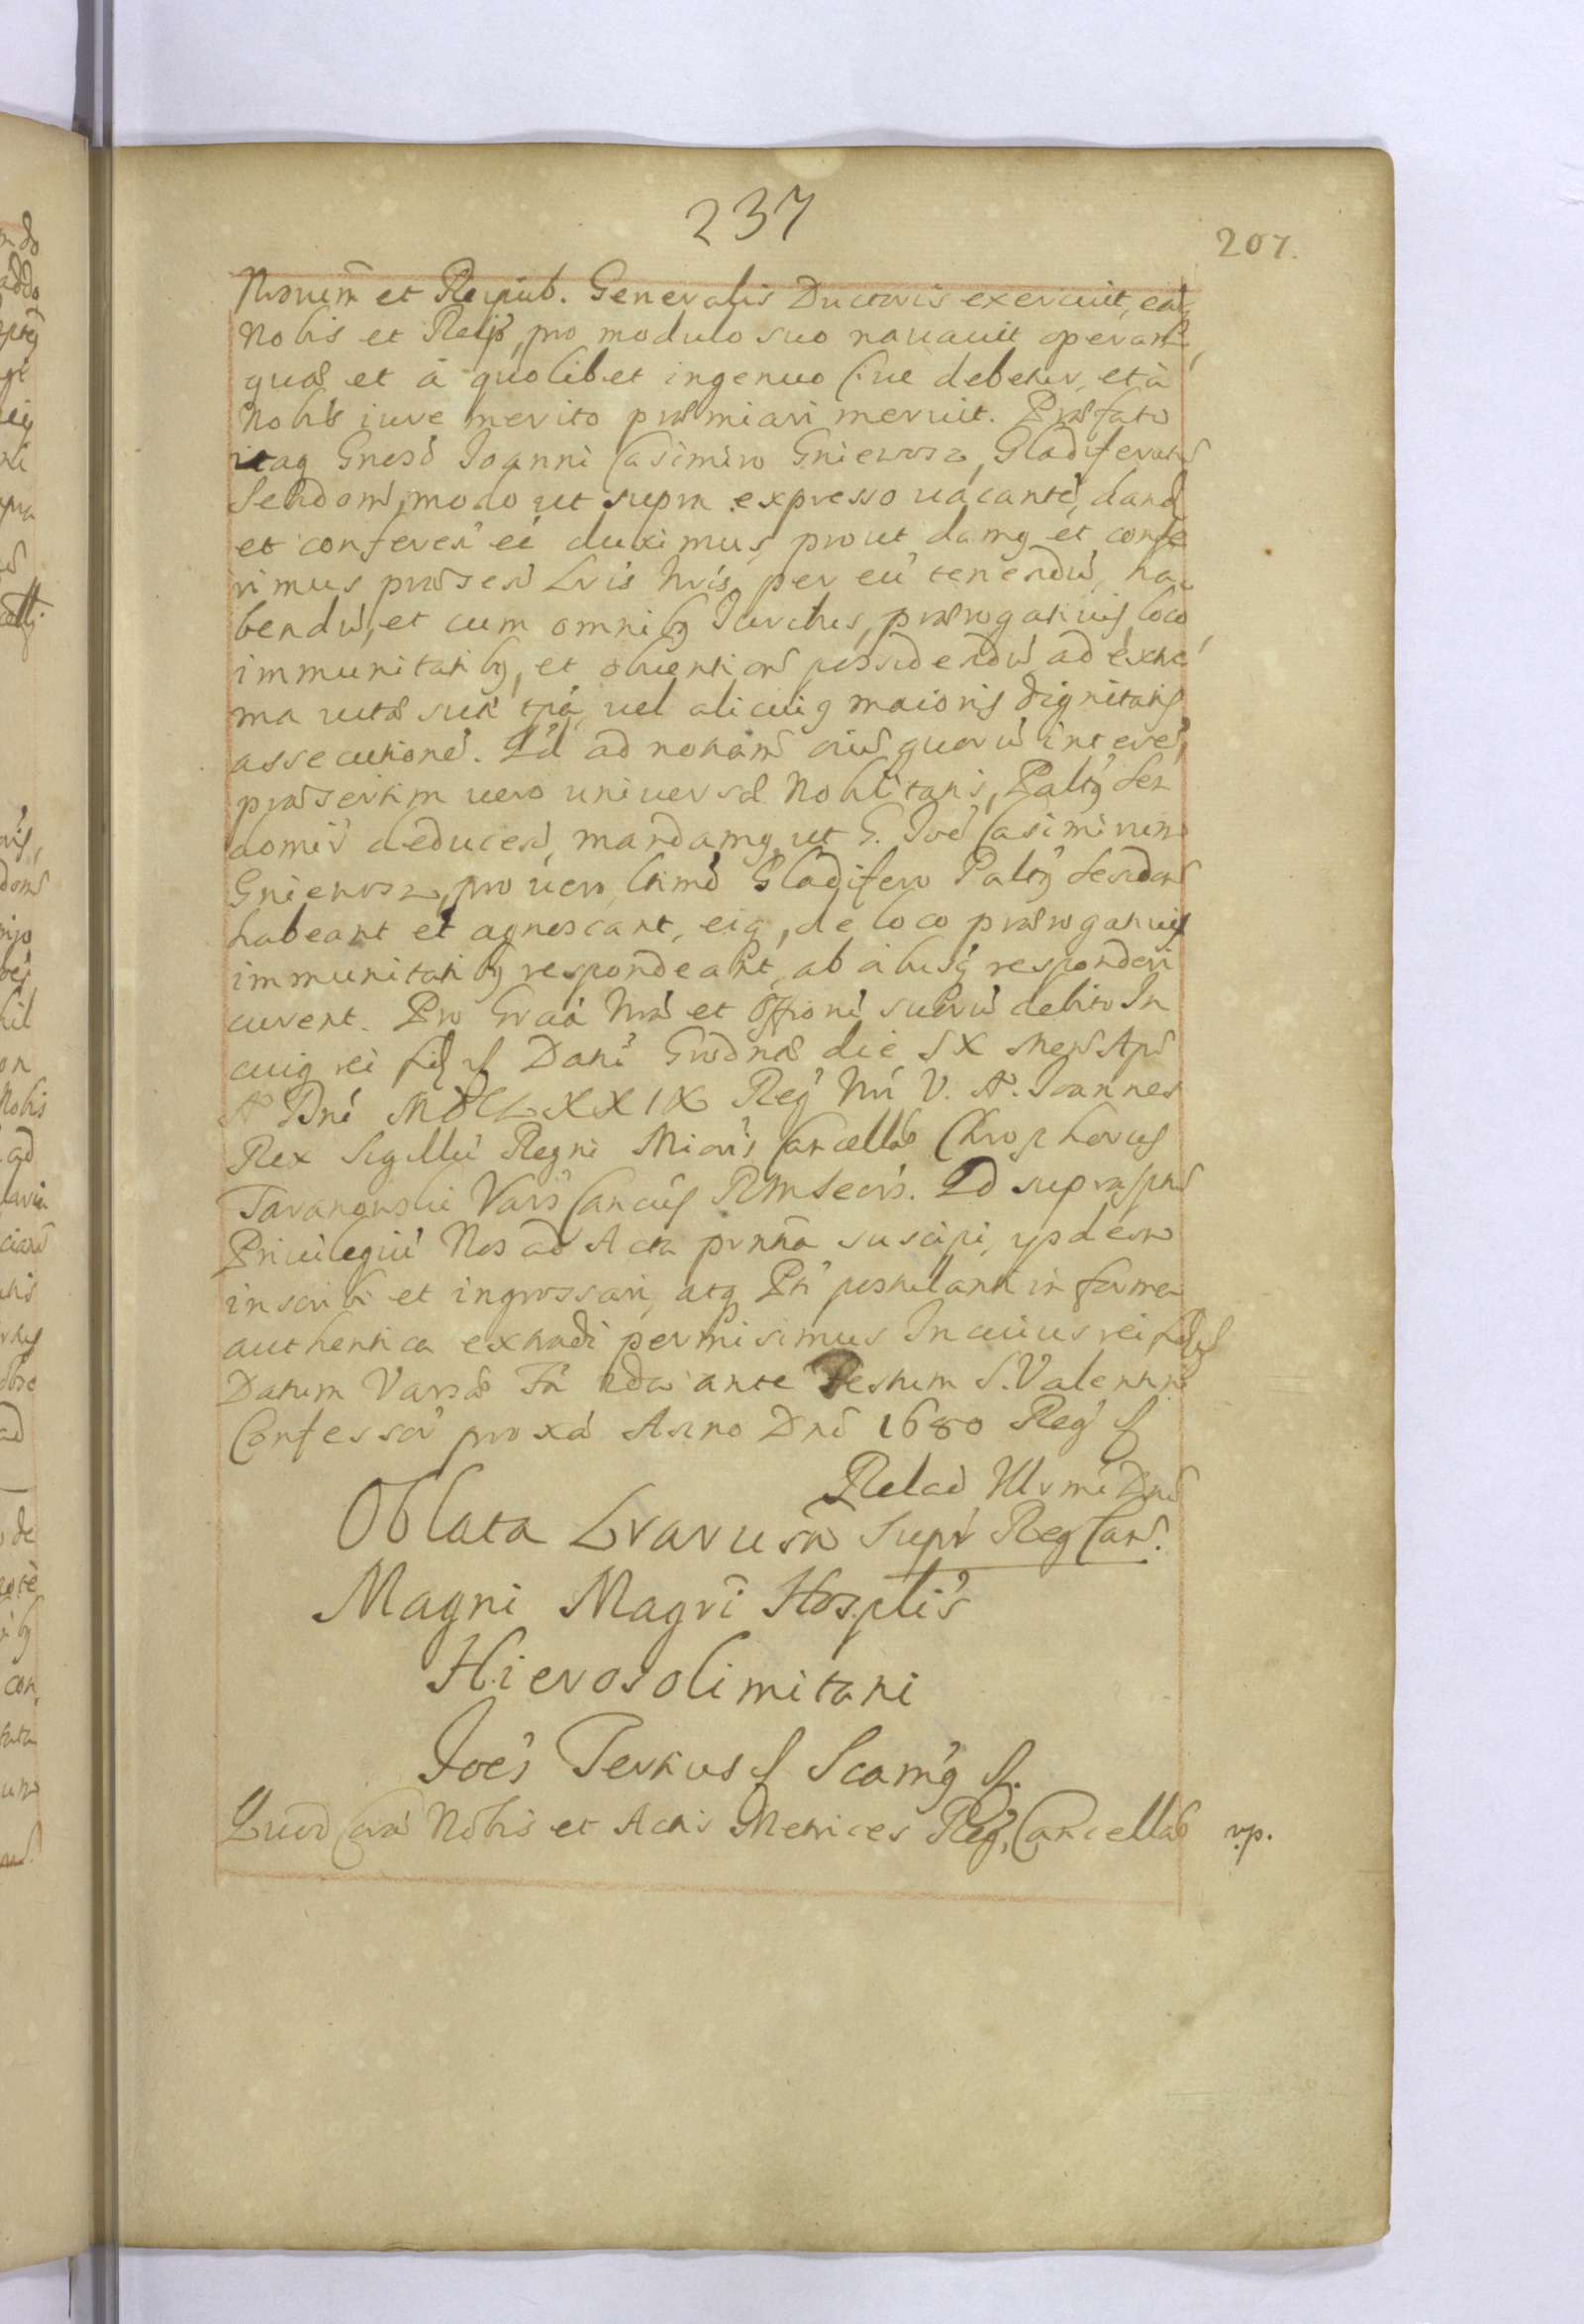 237
207.
et Reipub. Generalis Ductoris exercuit, eaq
Nobis et Reip, pro modulo suo nauauit operam
quæ et à quolibet ingenuo siue debetur, et à
Nobis iure merito præmiari meruit. Præfato
itaq Gnoso Joanni Casimiro Gniewosz, Gladiferatu
Sendom, modo ut supra expresso uacante, dand
et conferen ei duximus, prout damq et confe
rimus præsen Lris Nris per eu tenendu, ha
bendu, et cum omnibq Juribus, prærogatiuis, loco
immunitatibq, et obuention possidendu ad extre
ma uitæ suæ tpa, uel alicuiq maioris dignitatis
assecutione. Qd ad notiam oiu quoru interes,
præsertim uero uniuersæ Nobilitatis, Paltq Sen
domir deducen, mandamq, ut G. Joe Casimirum
Gniewosz, pro uero ltimo Gladifero Paltq Sendom
habeant et agnoscant, eiq, de loco prærogatiuis
immunitatibq respondeant, ab alijsq responderi
curent. Pro Graa Nra et Offionu suaru debito In
cuiq rei fid Dani Grodnæ die IX Mens Apr
A Dni MDCLXXIX Reg Nri V. A. Joannes
Rex Sigillu Regni Mioris Cancellae Chrophorus
Taranowski Vars Cancus RMSecris. Qd suprascrip
Priuilegiu Nos ad Acta prnta suscipi, ysdem
inscribi et ingrossari, atq Pti postulanti in forma
authentica extradi permisimus In cuius rei fid
Datum Varsæ Fa 2da ante Festum S. Valentini
Confessor proxa Anno Dni 1680 Reg
Relao Illrmi Dni
Oblata Lrarum Supr Reg Can.
Magni Magri Hosplis
Hierosolimitani
Joes Tertius Scamq
Quod Nobis et Actis Metrices Reg. Cancellae
rp.